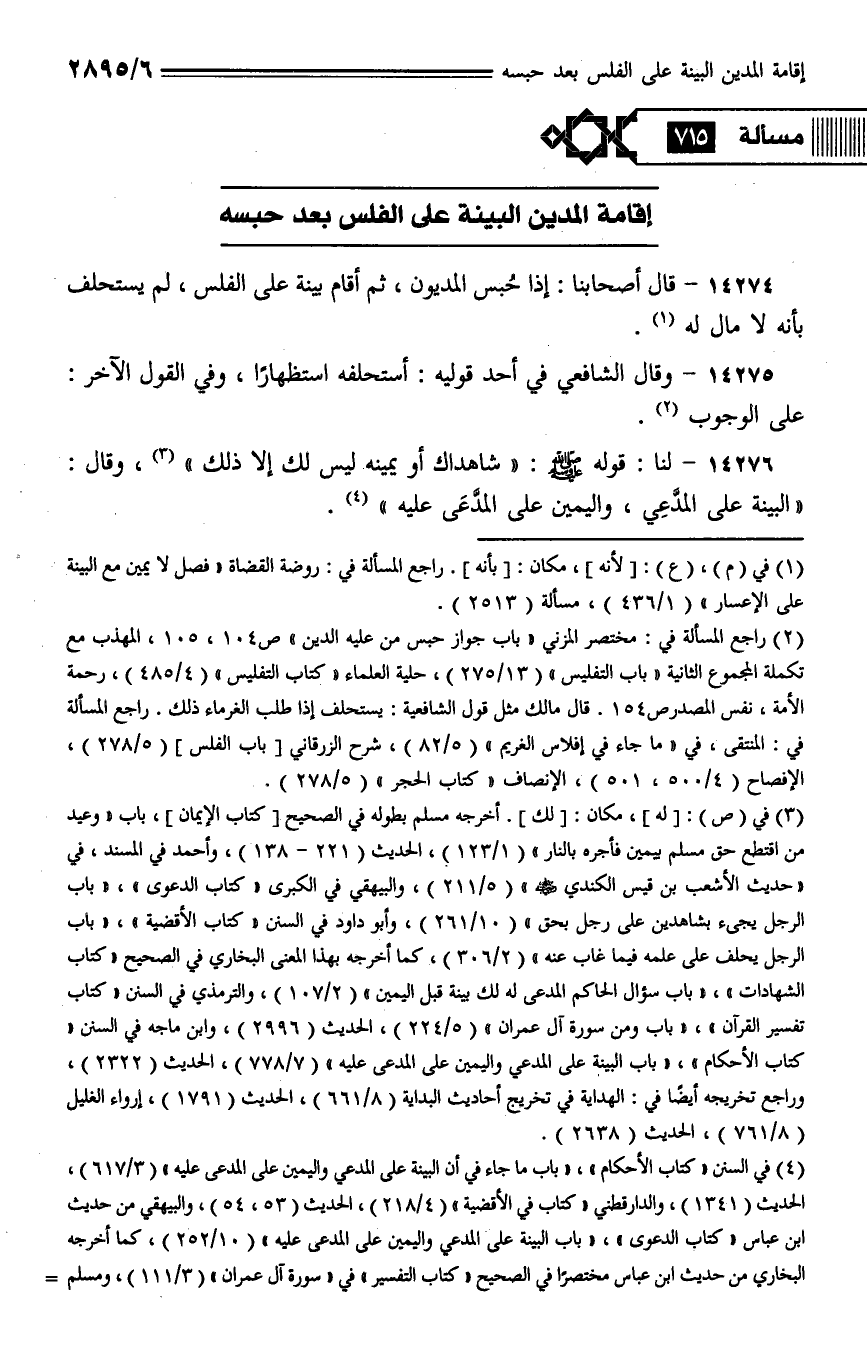 إقامة المدين البينة على الفلس بعد حبسه ٢٨٩٥/٦
مسألة ٧١٥
إقامة المدين البينة على الفلس بعد حبسه
١٤٢٧٤ - قال أصحابنا : إذا حُبس المديون ، ثم أقام بينة على الفلس ، لم يستحلف
بأنه لا مال له (١) .
١٤٢٧٥ - وقال الشافعي في أحد قوليه : أستحلفه استظهارًا ، وفي القول الآخر :
على الوجوب (٢) .
١٤٢٧٦ - لنا : قوله ﷺ : « شاهداك أو يمينه ليس لك إلا ذلك » (٣) ، وقال :
« البينة على المدَّعِي ، واليمين على المدَّعَى عليه » (٤) .
(١) في ( م ) ، ( ع ) : [ لأنه ] ، مكان : [ بأنه ] . راجع المسألة في : روضة القضاة « فصل لا يمين مع البينة
على الإعسار » ( ٤٣٦/١ ) ، مسألة ( ٢٥١٣ ) .
(٢) راجع المسألة في : مختصر المزني « باب جواز حبس من عليه الدين » ص١٠٤ ، ١٠٥ ، المهذب مع
تكملة المجموع الثانية « باب التفليس » ( ٢٧٥/١٣ ) ، حلية العلماء « كتاب التفليس » ( ٤٨٥/٤ ) ، رحمة
الأمة ، نفس المصدر ص١٥٤ . قال مالك مثل قول الشافعية : يستحلف إذا طلب الغرماء ذلك . راجع المسألة
في : المنتقى ، في « ما جاء في إفلاس الغريم » ( ٨٢/٥ ) ، شرح الزرقاني [ باب الفلس ] ( ٢٧٨/٥ ) ،
الإفصاح ( ٥٠٠/٤ ، ٥٠١ ) ، الإنصاف « كتاب الحجر » ( ٢٧٨/٥ ) .
(٣) في ( ص ) : [ له ] ، مكان : [ لك ] . أخرجه مسلم بطوله في الصحيح [ كتاب الإيمان ] ، باب « وعيد
من اقتطع حق مسلم بيمين فأجره بالنار » ( ١٢٣/١ ) ، الحديث ( ٢٢١ - ١٣٨ ) ، وأحمد في المسند ، في
« حديث الأشعب بن قيس الكندي ﷺ » ( ٢١١/٥ ) ، والبيهقي في الكبرى « كتاب الدعوى » ، « باب
الرجل يجيء بشاهدين على رجل بحق » ( ٢٦١/١٠ ) ، وأبو داود في السنن « كتاب الأقضية » ، « باب
الرجل يحلف على علمه فيما غاب عنه » ( ٣٠٦/٢ ) ، كما أخرجه بهذا المعنى البخاري في الصحيح « كتاب
الشهادات » ، « باب سؤال الحاكم المدعى له لك بينة قبل اليمين » ( ١٠٧/٢ ) ، والترمذي في السنن « كتاب
تفسير القرآن » ، « باب ومن سورة آل عمران » ( ٢٢٤/٥ ) ، الحديث ( ٢٩٩٦ ) ، وابن ماجه في السنن «
كتاب الأحكام » ، « باب البينة على المدعي واليمين على المدعى عليه » ( ٧٧٨/٧ ) ، الحديث ( ٢٣٢٢ ) ،
وراجع تخريجه أيضًا في : الهداية في تخريج أحاديث البداية ( ٦٦١/٨ ) ، الحديث ( ١٧٩١ ) ، إرواء الغليل
( ٧٦١/٨ ) ، الحديث ( ٢٦٣٨ ) .
(٤) في السنن « كتاب الأحكام » ، « باب ما جاء في أن البينة على المدعي واليمين على المدعى عليه » ( ٦١٧/٣ ) ،
الحديث ( ١٣٤١ ) ، والدارقطني « كتاب في الأقضية » ( ٢١٨/٤ ) ، الحديث ( ٥٣ ، ٥٤ ) ، والبيهقي من حديث
ابن عباس « كتاب الدعوى » ، « باب البينة على المدعي واليمين على المدعى عليه » ( ٢٥٢/١٠ ) ، كما أخرجه
البخاري من حديث ابن عباس مختصرًا في الصحيح « كتاب التفسير » في « سورة آل عمران » ( ١١١/٣ ) ، ومسلم =